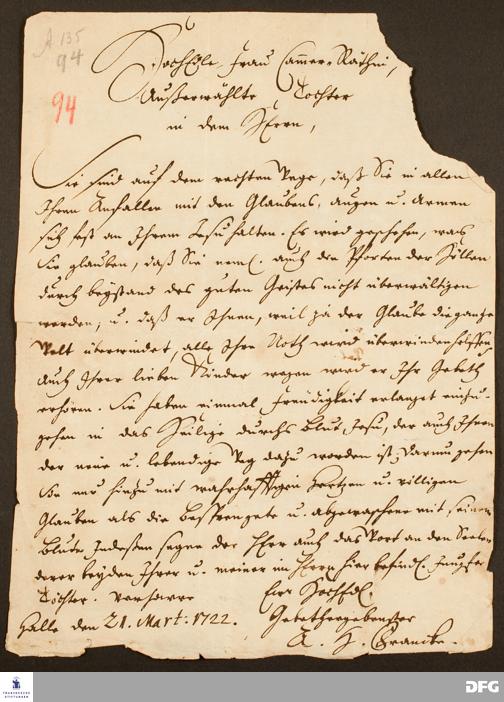 A 135
94
94
HochEdle Frau Cammer-Räthin,
Außerwählte Tochter
in dem HErrn,
Sie sind auf dem rechten Wege, daß Sie in allen
Ihren Anfällen mit den Glaubens, augen u. Armen
sich fest an Ihrem Jesu halten. Es wird geschehen, was
Sie glauben, daß Sie neml. auch die Pforten der Höllen
durch beystand des guten Geistes nicht überwältigen
werden, u. daß er Ihnen, weil ja der Glaube die gantze
Welt überwindet, alle Ihre Noth wird überwinden helffen,
auch Ihrer lieben Kinder wegen wird er Ihr Gebeth
erhören. Sie haben einmal Freudigkeit erlanget einzu-
gehen in das Heilige durchs blut Jesu, der auch Ihnen
der neue u. lebendige Weg dazu worden ist. Darum gehen
Sie nur hinzu mit wahrhafftigen Hertzen u. völligen
Glauben als die Besprengete u. abgewaschene mit seinem
blute. Indeßen segne der HErr auch das Wort an den Seelen
derer beyden Ihrer u. meiner im HErrn hier befindl. Jungfer
Töchter. verharre
Eur HochEdl.
Halle den 21. Mart. 1722.
Gebethergebenster
A. H. Francke.
FRANCKESCHE
STIFTUNGEN
DFG